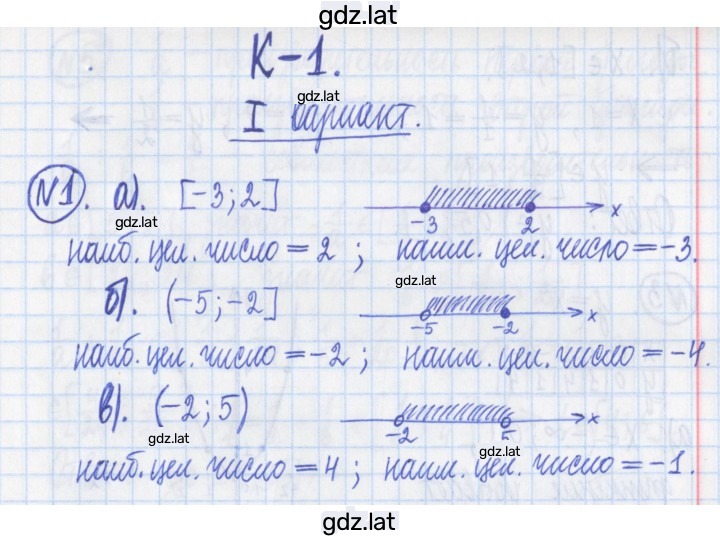 gdz.lat
К-1.
gdz.lat
I вариант.
№1. а). [-3; 2] -3 2 x
gdz.lat
наиб. цел. число = 2 ; наим. цел. число = -3.
б). (-5; -2] -5 -2 x
gdz.lat
наиб. цел. число = -2 ; наим. цел. число = -4.
в). (-2; 5) -2 5 x
gdz.lat gdz.lat
наиб. цел. число = 4 ; наим. цел. число = -1.
gdz.lat